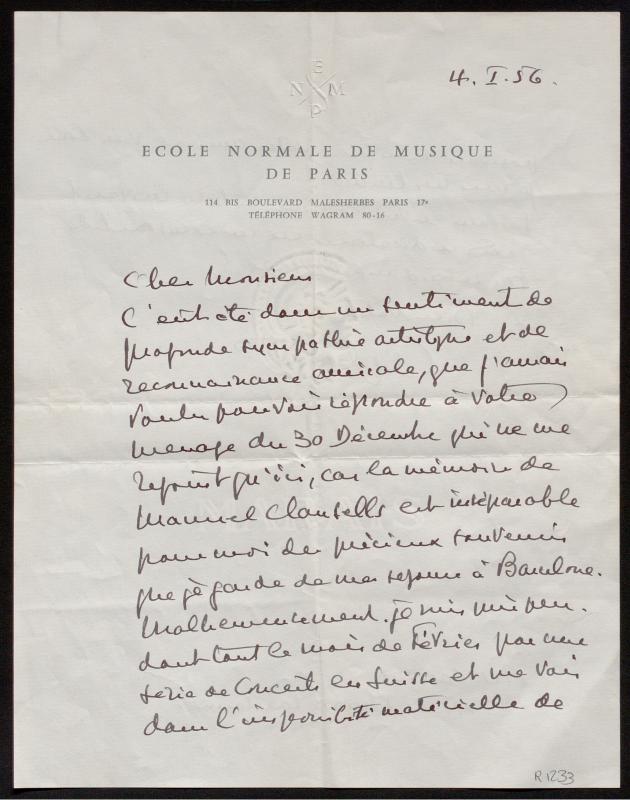 E
N M
P
4. I. 56.
ECOLE NORMALE DE MUSIQUE
DE PARIS
114 BIS BOULEVARD MALESHERBES PARIS 17e
TÉLÉPHONE WAGRAM 80-16
Cher Monsieur
C'eut été dans un sentiment de
profonde sympathie artistique et de
reconnaissance amicale, que j'aurais
voulu pouvoir répondre à votre
message du 30 Décembre qui ne me
rejoint qu'ici, car la mémoire de
Manuel Clausells est inséparable
pour moi des précieux souvenirs
que je garde de mes séjours à Barcelone.
Malheureusement je suis pris pen-
dant tout le mois de Février par une
série de Concerts en Suisse et me vois
dans l'impossibilité matérielle de
R 1233